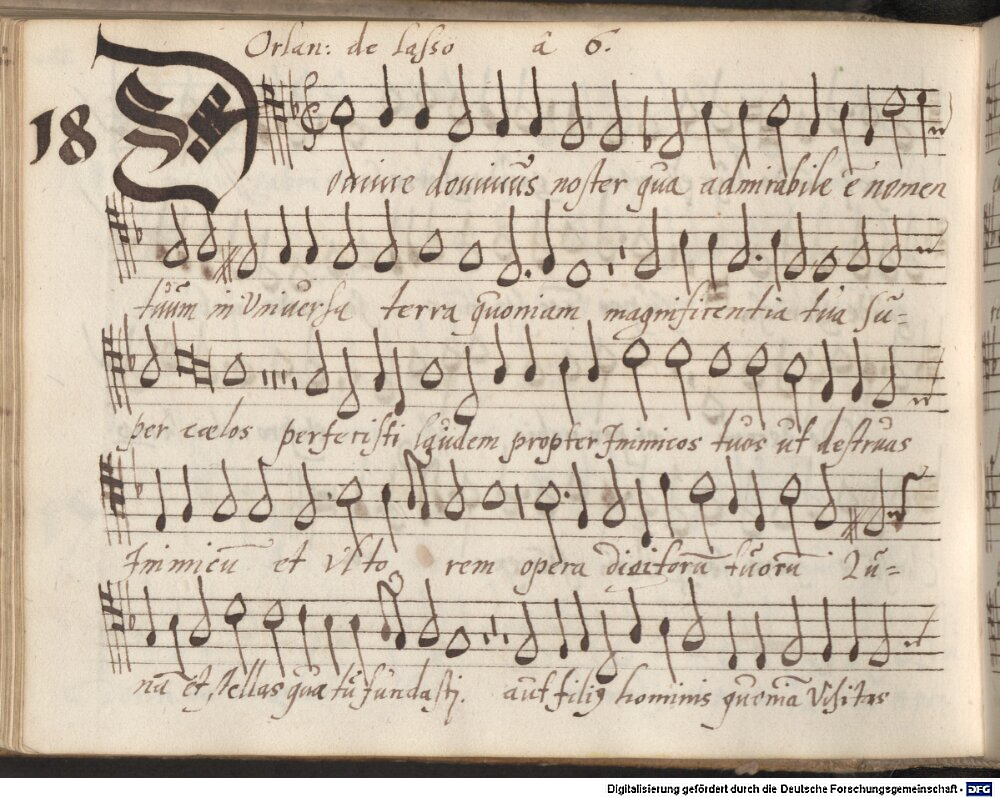 Orlan: de lasso â 6.
18 D omine dominus noster quā admirabile ē nomen
tuum in Universa terra quoniam magnificentia tua su=
per cælos perfecisti laudem propter Inimicos tuos ut destruas
Inimicū et Ulto rem opera digitorū tuorū Lu=
nā et stellas quæ tū fundasti. aut filiꝰ hominis quoniā Visitas
Digitalisierung gefördert durch die Deutsche Forschungsgemeinschaft - DFG